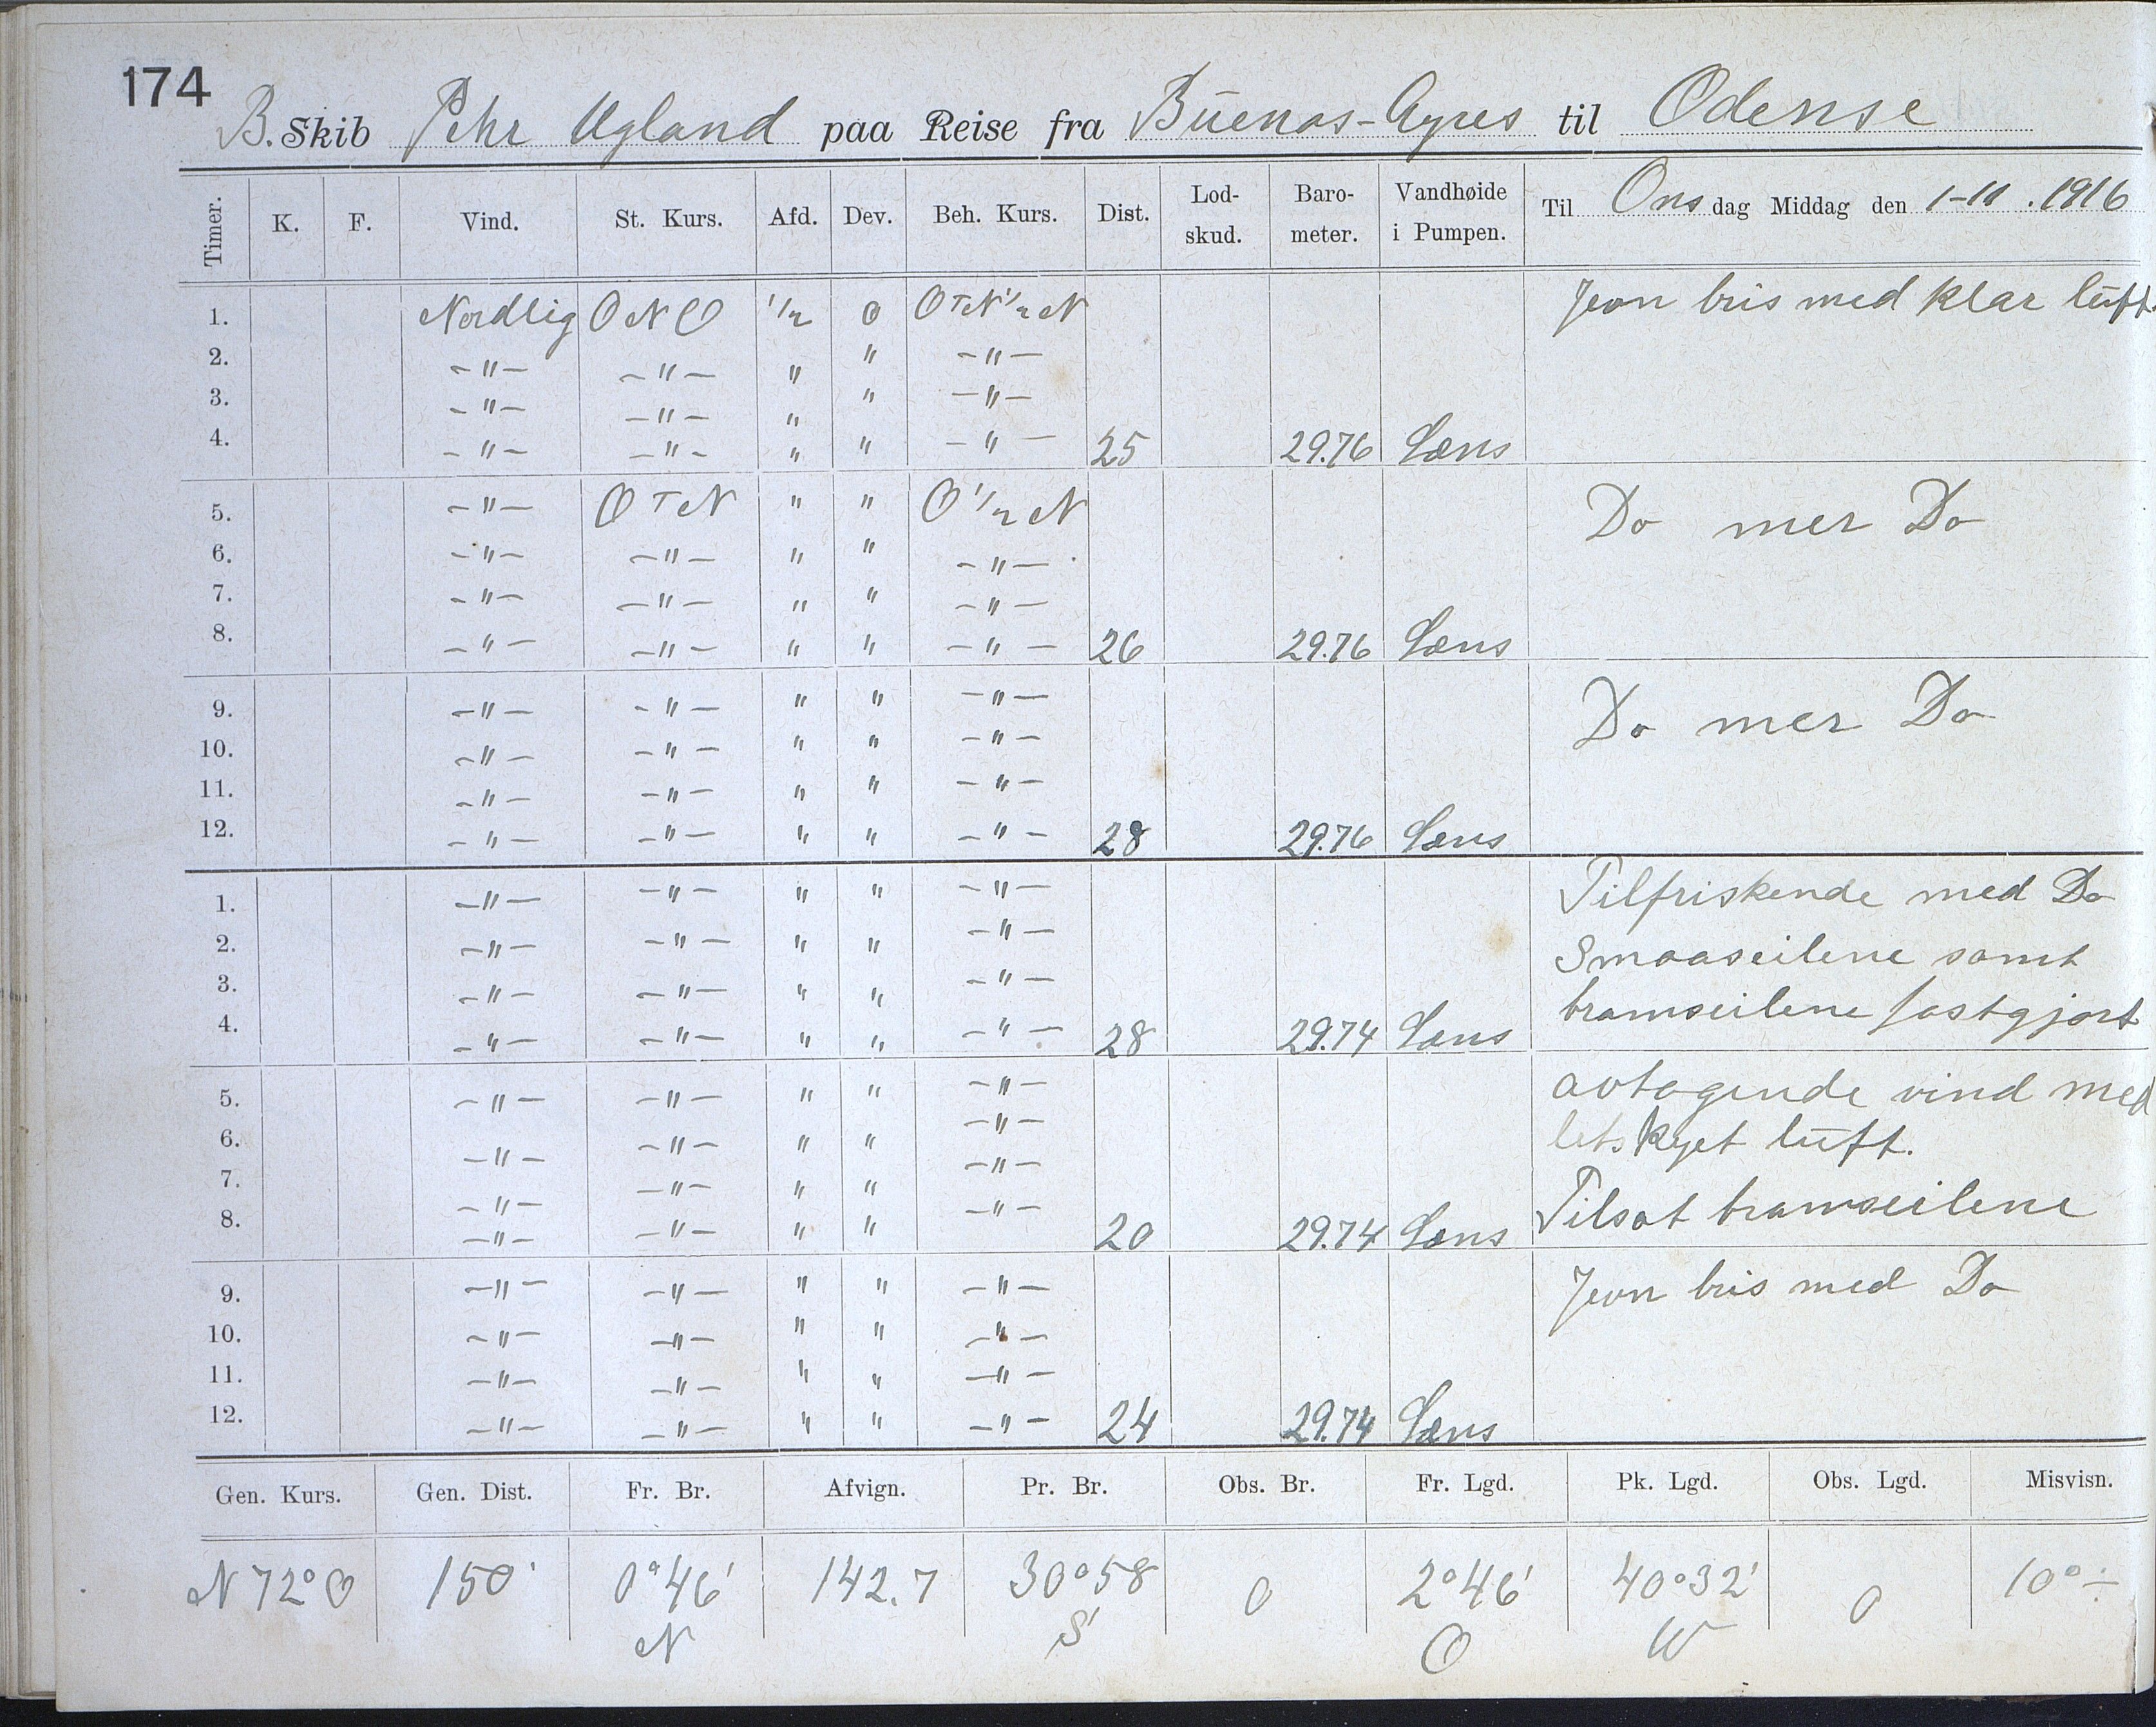 174
B. Skib Pehr Ugland paa Reise fra Buenos-Ayres til Odense
Timer. K. F. Vind. St. Kurs. Afd. Dev. Beh. Kurs. Dist. Lod-skud. Baro-meter. Vandhøide i Pumpen. Til Onsdag Middag den 1-11.1916
1. Nordlig ONO 1/2 0 OTN 1/2 N Jevn bris med klar luft.
2. -"- -"- " " -"-
3. -"- -"- " " -"-
4. -"- -"- " " -"- 25 29.76 Læns
5. -"- OTN " " O 1/2 N Do mer Do
6. -"- -"- " " -"-
7. -"- -"- " " -"-
8. -"- -"- " " -"- 26 29.76 Læns
9. -"- -"- " " -"- Do mer Do
10. -"- -"- " " -"-
11. -"- -"- " " -"-
12. -"- -"- " " -"- 28 29.76 Læns
1. -"- -"- " " -"- Tilfriskende med Do
2. -"- -"- " " -"- Smaaseilene samt
3. -"- -"- " " -"- bramseilene fastgjort
4. -"- -"- " " -"- 28 29.74 Læns
5. -"- -"- " " -"- avtagende vind med
6. -"- -"- " " -"- letskyet luft.
7. -"- -"- " " -"-
8. -"- -"- " " -"- 20 29.74 Læns Tilsat bramseilene
9. -"- -"- " " -"- Jevn bris med Do
10. -"- -"- " " -"-
11. -"- -"- " " -"-
12. -"- -"- " " -"- 24 29.74 Læns
Gen. Kurs. Gen. Dist. Fr. Br. Afvign. Pr. Br. Obs. Br. Fr. Lgd. Pk. Lgd. Obs. Lgd. Misvisn.
N 72° O 150' 0°46' 142.7 30°58 0 2°46' 40°32' 0 10° ÷
N S O W